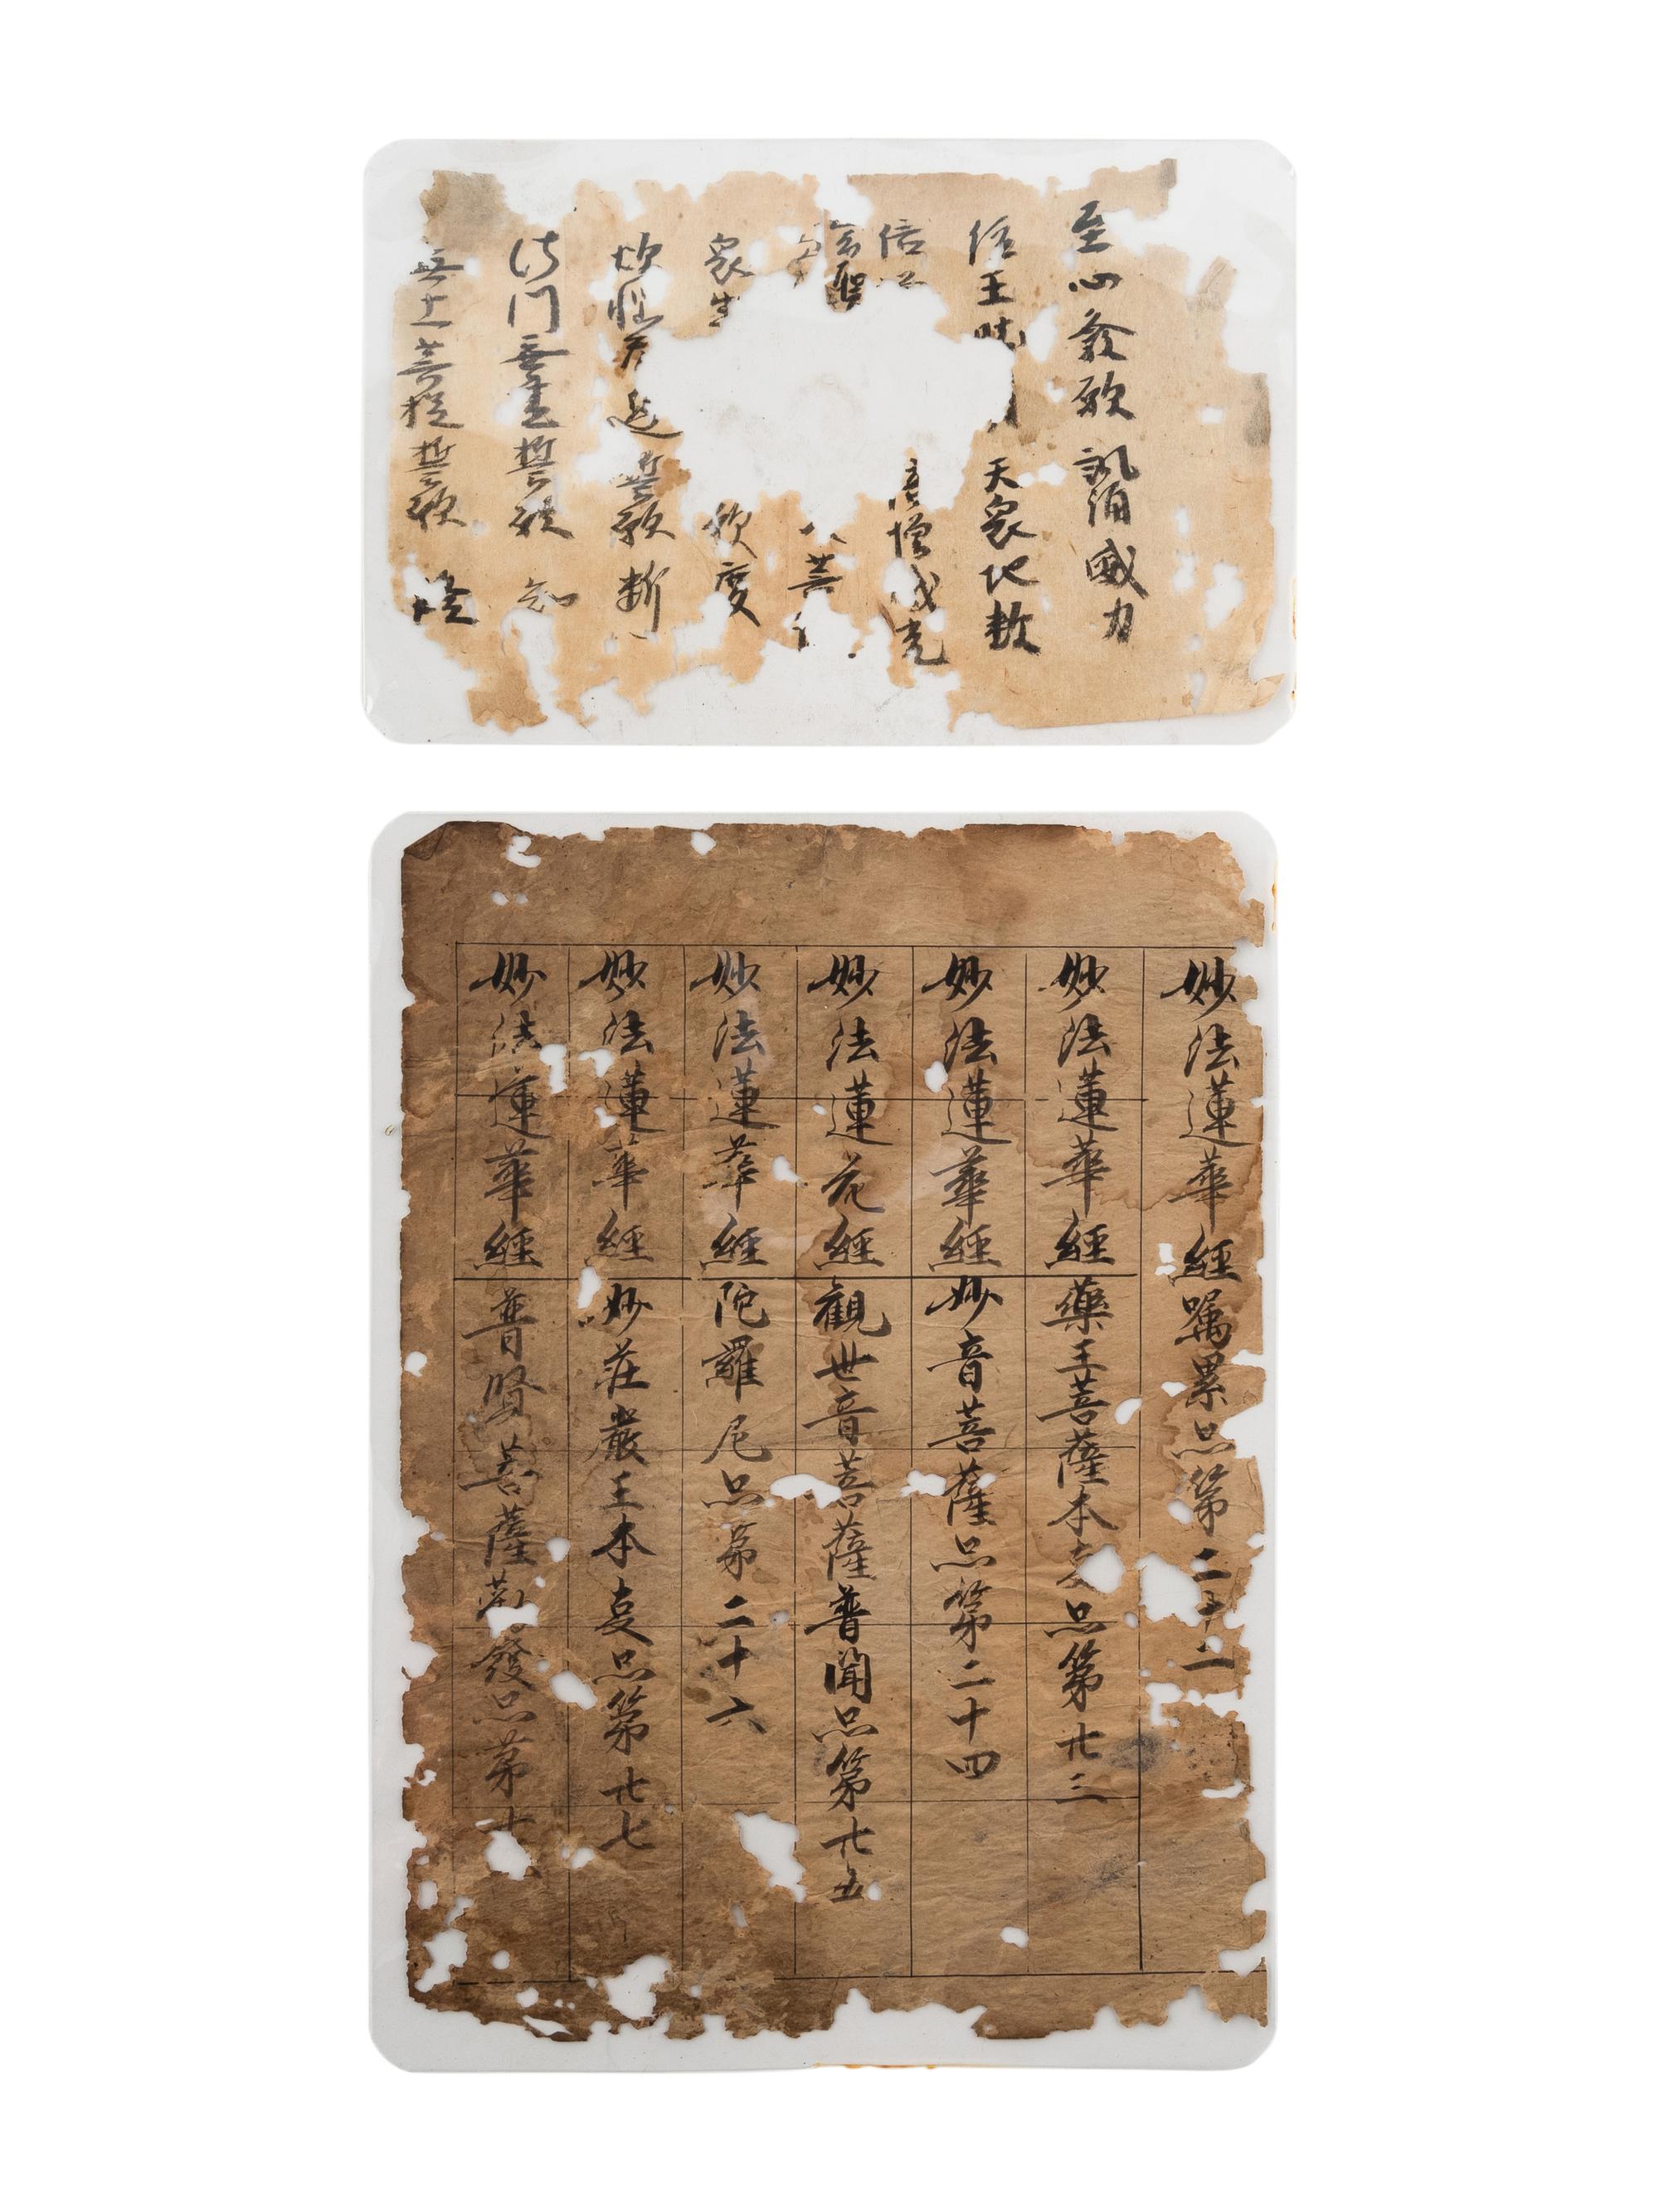 至心發願 誐洎威力
天衆地
信
增
衆生 度
誓願 斷
法門無盡誓願 知
無上菩提誓願 證
妙法蓮華經嘱累品第二十二
妙法蓮華經藥王菩薩本叓品第廿三
妙法蓮華經妙音菩薩品第二十四
妙法蓮花經觀世音菩薩普聞品第廿五
妙法蓮華經陀羅尼品第二十六
妙法蓮華經妙莊嚴王本叓品第廿七
妙法蓮華經普賢菩薩勸發品第廿